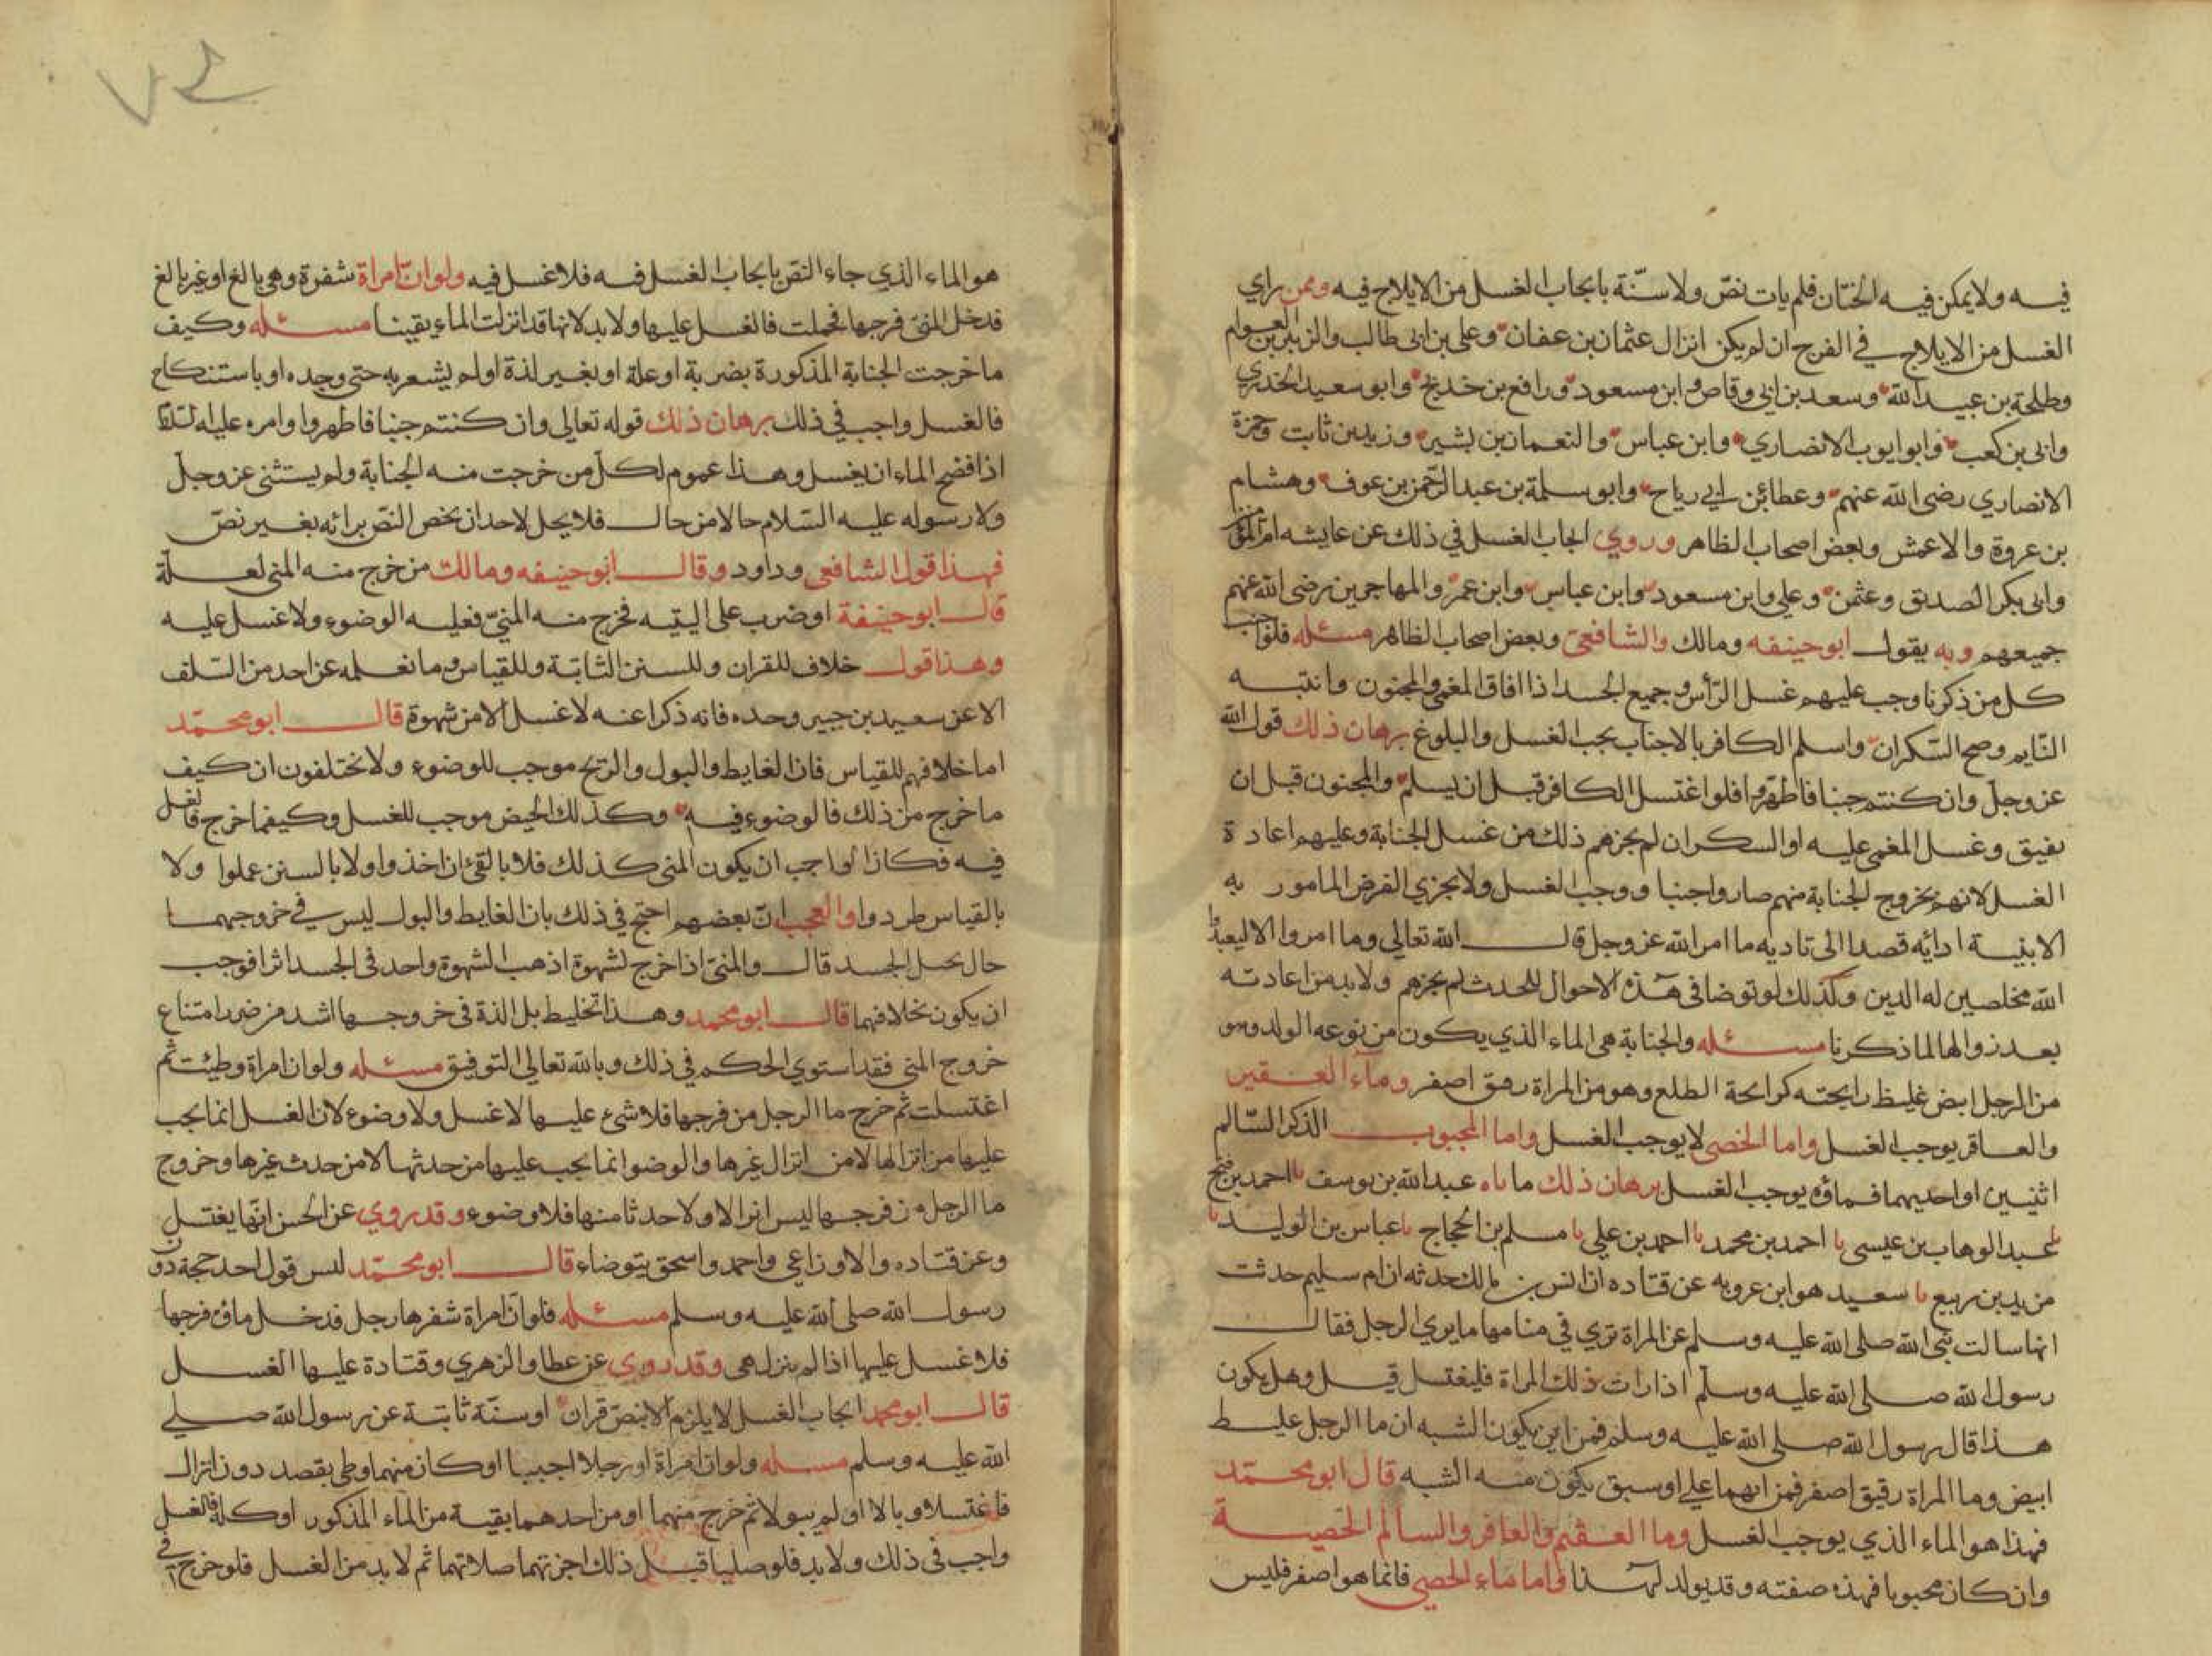 فيه ولا يمكن فيه الختان فلم يات نصّ ولا سنّة بايجاب الغسل من الايلاج فيه وممن راي
الغسل من الايلاج في الفرج ان لم يكن انزال عثمان بن عفان وعلي بن ابي طالب والزبير بن العوام
وطلحة بن عبيد الله وسعد بن ابي وقاص وابن مسعود ورافع بن خديج وابو سعيد الخدري
وابي بن كعب وابو ايوب الانصاري وابن عباس والنعمان بن بشير وزيد بن ثابت وجمرة
الانصاري رضي الله عنهم وعطا بن ابي رياح وابو سلمة بن عبد الرحمن بن عوف وهشام
بن عروة والاعمش وبعض اصحاب الظاهر وروي ايجاب الغسل في ذلك عن عايشه ام المؤمنين
وابي بكر الصديق وعثمن وعلي وابن مسعود وابن عباس وابن عمر والمهاجرين رضي الله عنهم
جميعهم وبه يقول ابو حينفه ومالك والشافعي وبعض اصحاب الظاهر مسئله فلو اجنب
كل من ذكرنا وجب عليهم غسل الرّأس وجميع الجسد اذا افاق المغمي والمجنون وانتبه
النّايم وصح السّكران واسلم الكافر بالاجناب يجب الغسل والبلوغ برهان ذلك قول الله
عز وجل وان كنتم جنبا فاطهروا فلو اغتسل الكافر قبل ان يسلم والمجنون قبل ان
يفيق وغسل المغمي عليه او السكران لم يجزهم ذلك من غسل الجنابة وعليهم اعادة
الغسل لانهم بخروج الجنابة منهم صاروا جنبا ووجب الغسل ولا يجزي الفرض المامور به
الا بنية ادائه قصدا الي تاديه ما امر الله عز وجل قال الله تعالي وما امروا الا ليعبدوا
الله مخلصين له الدين وكذلك لو توضا في هذه الاحوال للحدث لم يجزهم ولا بد من اعادته
بعد زوالها لما ذكرنا مسئله والجنابة هي الماء الذي يكون من نوعه الولد وهو
من الرجل ابيض غليظ رايحته كرايحة الطلع وهو من المراة رقيق اصفر وماء العقيم
والعاقر يوجب الغسل واما الخصي لا يوجب الغسل واما المجبوب الذكر السّالم
اثنيين او احديهما فماؤه يوجب الغسل برهان ذلك ما ناه عبد الله بن يوسف نا احمد بن فتح
نا عبد الوهاب بن عيسي نا احمد بن محمد نا احمد بن علي نا مسلم بن الحجاج نا عباس بن الوليد نا
يزيد بن ربيع نا سعيد هو ابن عروبه عن قتاده ان انس بن مالك حدثه ان ام سليم حدثت
انها سالت نبي الله صلي الله عليه وسلم عن المراة تري في منامها ما يري الرجل فقال
رسول الله صلي الله عليه وسلّم اذا رات ذلك المراة فليغتسل قيل وهل يكون
هذا قال رسول الله صلي الله عليه وسلم فمن اين يكون الشبه ان ما الرجل غليظ
ابيض وما المراة رقيق اصفر فمن ايهما علي او سبق يكون منه الشبه قال ابو محمّد
فهذا هو الماء الذي يوجب الغسل وما العقيم والعاقر والسالم الخصية
وان كان مجبوبا فهذه صفته وقد يولد لهذا واما ماء الخصي فانما هو اصفر فليس
هو الماء الذي جاء النصّ بايجاب الغسل فيه فلا غسل فيه ولو انّ امراة شفرة وهي بالغ او غير بالغ
فدخل المني فرجها فحملت فالغسل عليها ولا بد لانها قد انزلت الماء يقينا مسئله وكيف
ما خرجت الجنابة المذكورة بضربة او علة او بغير لذة او لم يشعر به حتي وجده او باستنكاح
فالغسل واجب في ذلك برهان ذلك قوله تعالي وان كنتم جنبا فاطهروا وامره عليه السّلام
اذا فضح الماء ان يغسل وهذا عموم لكل من خرجت منه الجنابة ولم يستثني عز وجل
ولا رسوله عليه السّلام حالا من حال فلا يحل لاحد ان يخص النصّ برائه بغير نصّ
فهذا قول الشافعي وداود وقال ابو حينفه ومالك من خرج منه المني لعلّة
قال ابو حينفة او ضرب علي اليتيه فخرج منه المنيّ فعليه الوضوء ولا غسل عليه
وهذا قول خلاف للقران وللسنن الثابتة وللقياس وما نعلمه عن احد من السّلف
الا عن سعيد بن جبير وحده فانه ذكرا عنه لا غسل الا من شهوة قال ابو محمّد
اما خلافهم للقياس فان الغايط والبول والريح موجب للوضوء ولا يختلفون ان كيف
ما خرج من ذلك فالوضوء فيه وكذلك الحيض موجب للغسل وكيفما خرج فالغسل
فيه فكان الواجب ان يكون المني كذلك فلا بالقرءان اخذوا ولا بالسنن عملوا ولا
بالقياس طردوا والعجب انّ بعضهم احتج في ذلك بان الغايط والبول ليس في خروجهما
حال يحل الجسد قال والمنيّ اذا خرج لشهوة اذهب الشهوة واحد في الجسد اثرا فوجب
ان يكون بخلافهما قال ابو محمد وهذا تخليط بل الذة في خروجها اشد من ضرر امتناع
خروج المني فقد استوي الحكم في ذلك وبالله تعالي التوفيق مسئله ولو ان امراة وطيئت ثم
اغتسلت ثم خرج ما الرجل من فرجها فلا شيء عليها لا غسل ولا وضوء لان الغسل انما يجب
عليها من انزالها لا من انزال غيرها والوضو انما يجب عليها من حدثها لا من حدث غيرها وخروج
ما الرجل من فرجها ليس انزالا ولا حدثا منها فلا وضوء وقد روي عن الحسن انّها يغتسل
وعن قتاده والاوزاعي واحمد واسحق يتوضاء قال ابو محمّد ليس قول احد حجة دون
رسول الله صلي الله عليه وسلم مسئله فلو ان امراة شفرها رجل فدخل ماؤه فرجها
فلا غسل عليها اذا لم ينزل هي وقد روي عن عطا والزهري وقتادة عليها الغسل
قال ابو محمد ايجاب الغسل لا يلزم الا بنصّ قران او سنّة ثابتة عن رسول الله صلي
الله عليه وسلم مسله ولو ان امراة او رجلا اجنبا او كان منهما وطي بقصد دون انزال
فاغتسلا وبالا او لم يبولا ثم خرج منهما او من احدهما بقية من الماء المذكور او كله فالغسل
واجب في ذلك ولا بد فلو صليا قبل ذلك اجزتهما صلاتهما ثم لا بد من الغسل فلو خرج في